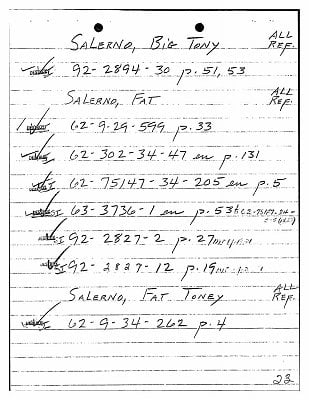 SALERNO, BIG TONY ALL REF.
92-2894-30 p. 51, 53
SALERNO, FAT ALL REF.
62-9-29-599 p. 33
62-302-34-47 en p. 131
62-75147-34-205 en p. 5
63-3736-1 en p. 53
92-2827-2 p. 27
92-2827-12 p. 19
SALERNO, FAT TONEY ALL REF.
62-9-34-262 p. 4
23